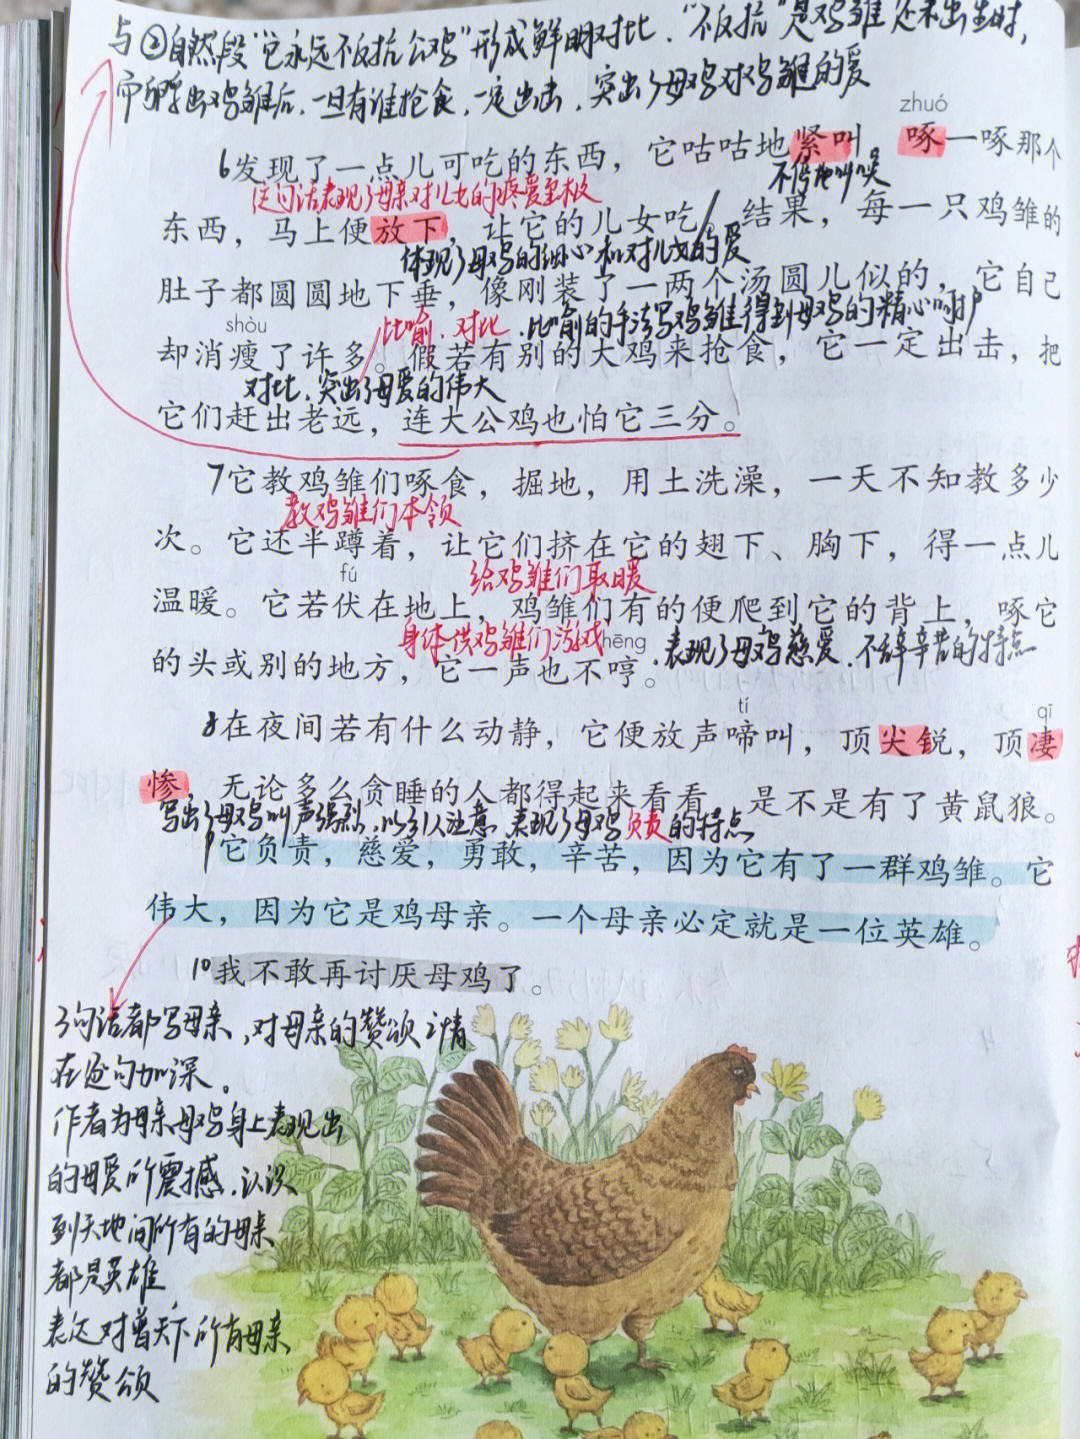 与②自然段“它永远不反抗公鸡”形成鲜明对比，“不反抗”是鸡雏还未出生时，
而孵出鸡雏后，一旦有谁抢食，一定出击，突出了母鸡对鸡雏的爱
zhuó
6发现了一点儿可吃的东西，它咕咕地紧叫。啄一啄那个
不停地叫唤
这句话表现了母亲对儿女的疼爱至极
东西，马上便放下，让它的儿女吃。结果，每一只鸡雏的
体现了母鸡的细心和对儿女的爱
肚子都圆圆地下垂，像刚装了一两个汤圆儿似的，它自己
shòu
比喻、对比，比喻的手法写鸡雏得到母鸡的精心呵护
却消瘦了许多。假若有别的大鸡来抢食，它一定出击，把
对比，突出了母爱的伟大
它们赶出老远，连大公鸡也怕它三分。
7它教鸡雏们啄食，掘地，用土洗澡，一天不知教多少
教鸡雏们本领
次。它还半蹲着，让它们挤在它的翅下、胸下，得一点儿
fú
给鸡雏们取暖
温暖。它若伏在地上，鸡雏们有的便爬到它的背上，啄它
身体供鸡雏们游戏
hēng
表现了母鸡慈爱、不辞辛苦的特点
的头或别的地方，它一声也不哼。
tí
qī
8在夜间若有什么动静，它便放声啼叫，顶尖锐，顶凄
惨，无论多么贪睡的人都得起来看看，是不是有了黄鼠狼。
写出了母鸡叫声强烈，以引人注意，表现了母鸡负责的特点
9它负责，慈爱，勇敢，辛苦，因为它有了一群鸡雏。它
伟大，因为它是鸡母亲。一个母亲必定就是一位英雄。
10我不敢再讨厌母鸡了。
3句话都写母亲，对母亲的赞颂之情
在逐句加深。
作者为母亲母鸡身上表现出
的母爱所震撼，认识
到天地间所有的母亲
都是英雄
表达对普天下所有母亲
的赞颂